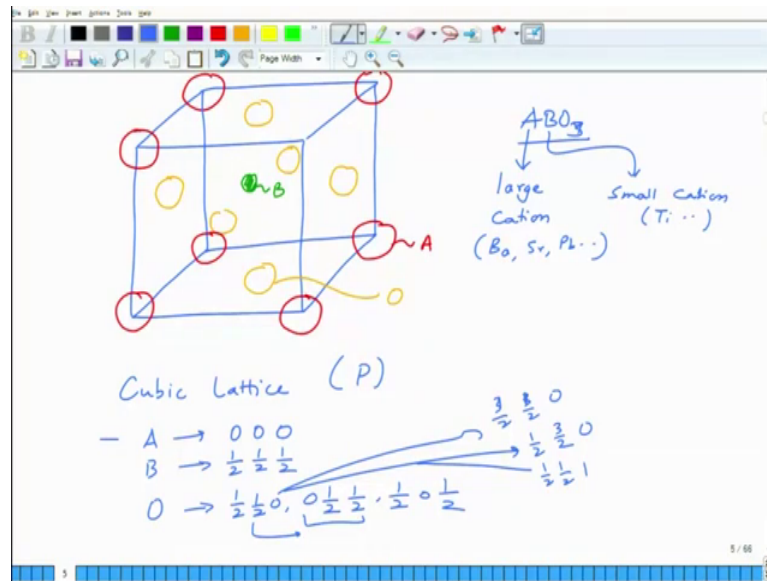 File Edit View Insert Actions Tools Help
Page Width
ABO3
large
cation
(Ba, Sr, Pb..)
small cation
(Ti ..)
B
A
O
Cubic Lattice (P)
- A → 0 0 0
B → 1/2 1/2 1/2
O → 1/2 1/2 0, 0 1/2 1/2, 1/2 0 1/2
3/2 3/2 0
1/2 3/2 0
1/2 1/2 1
5
5 / 66